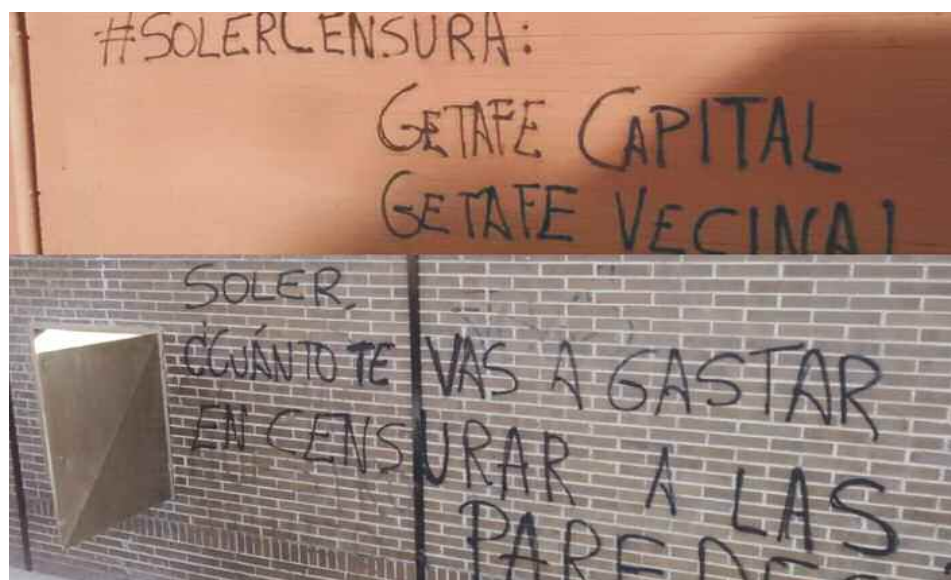 #SOLERCENSURA:
GETAFE CAPITAL
GETAFE VECINAL
SOLER,
¿CUÁNTO TE VAS A GASTAR
EN CENSURAR A LAS
PAREDES